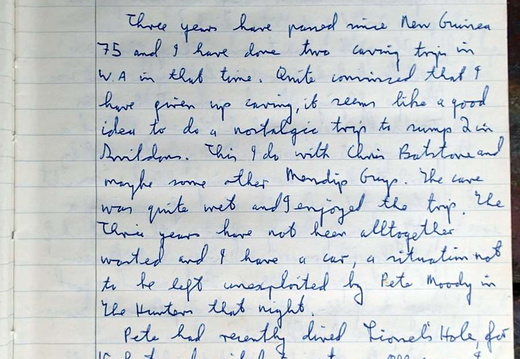 Three years have passed since New Guinea
75 and I have done two caving trips in
W.A in that time. Quite convinced that I
have given up caving, it seems like a good
idea to do a nostalgic trip to sump 2 in
Swildons. This I do with Chris Batstone and
maybe some other Mendip Guys. The cave
was quite wet and I enjoyed the trip. The
three years have not been alltogether
wasted and I have a car, a situation not
to be left unexploited by Pete Moody in
The Hunters that night.
Pete had recently dived Lionel's Hole, for